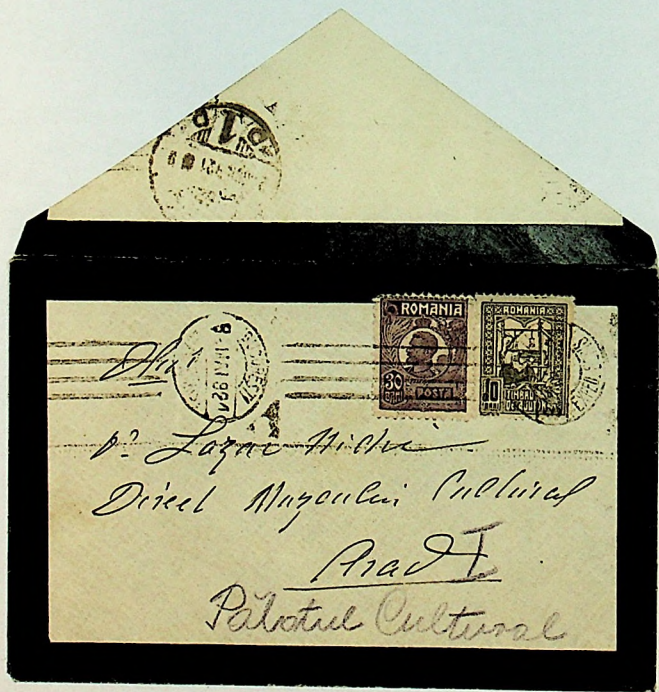 1
ROMANIA
30
BANI
POSTA
ROMANIA
10
BANI
TIMBRU
DE AJUTOR
BUCURESTI
Dlui
Dl Lazar Nichi
Direct Muzeului Cultural
Arad I
Palatul Cultural